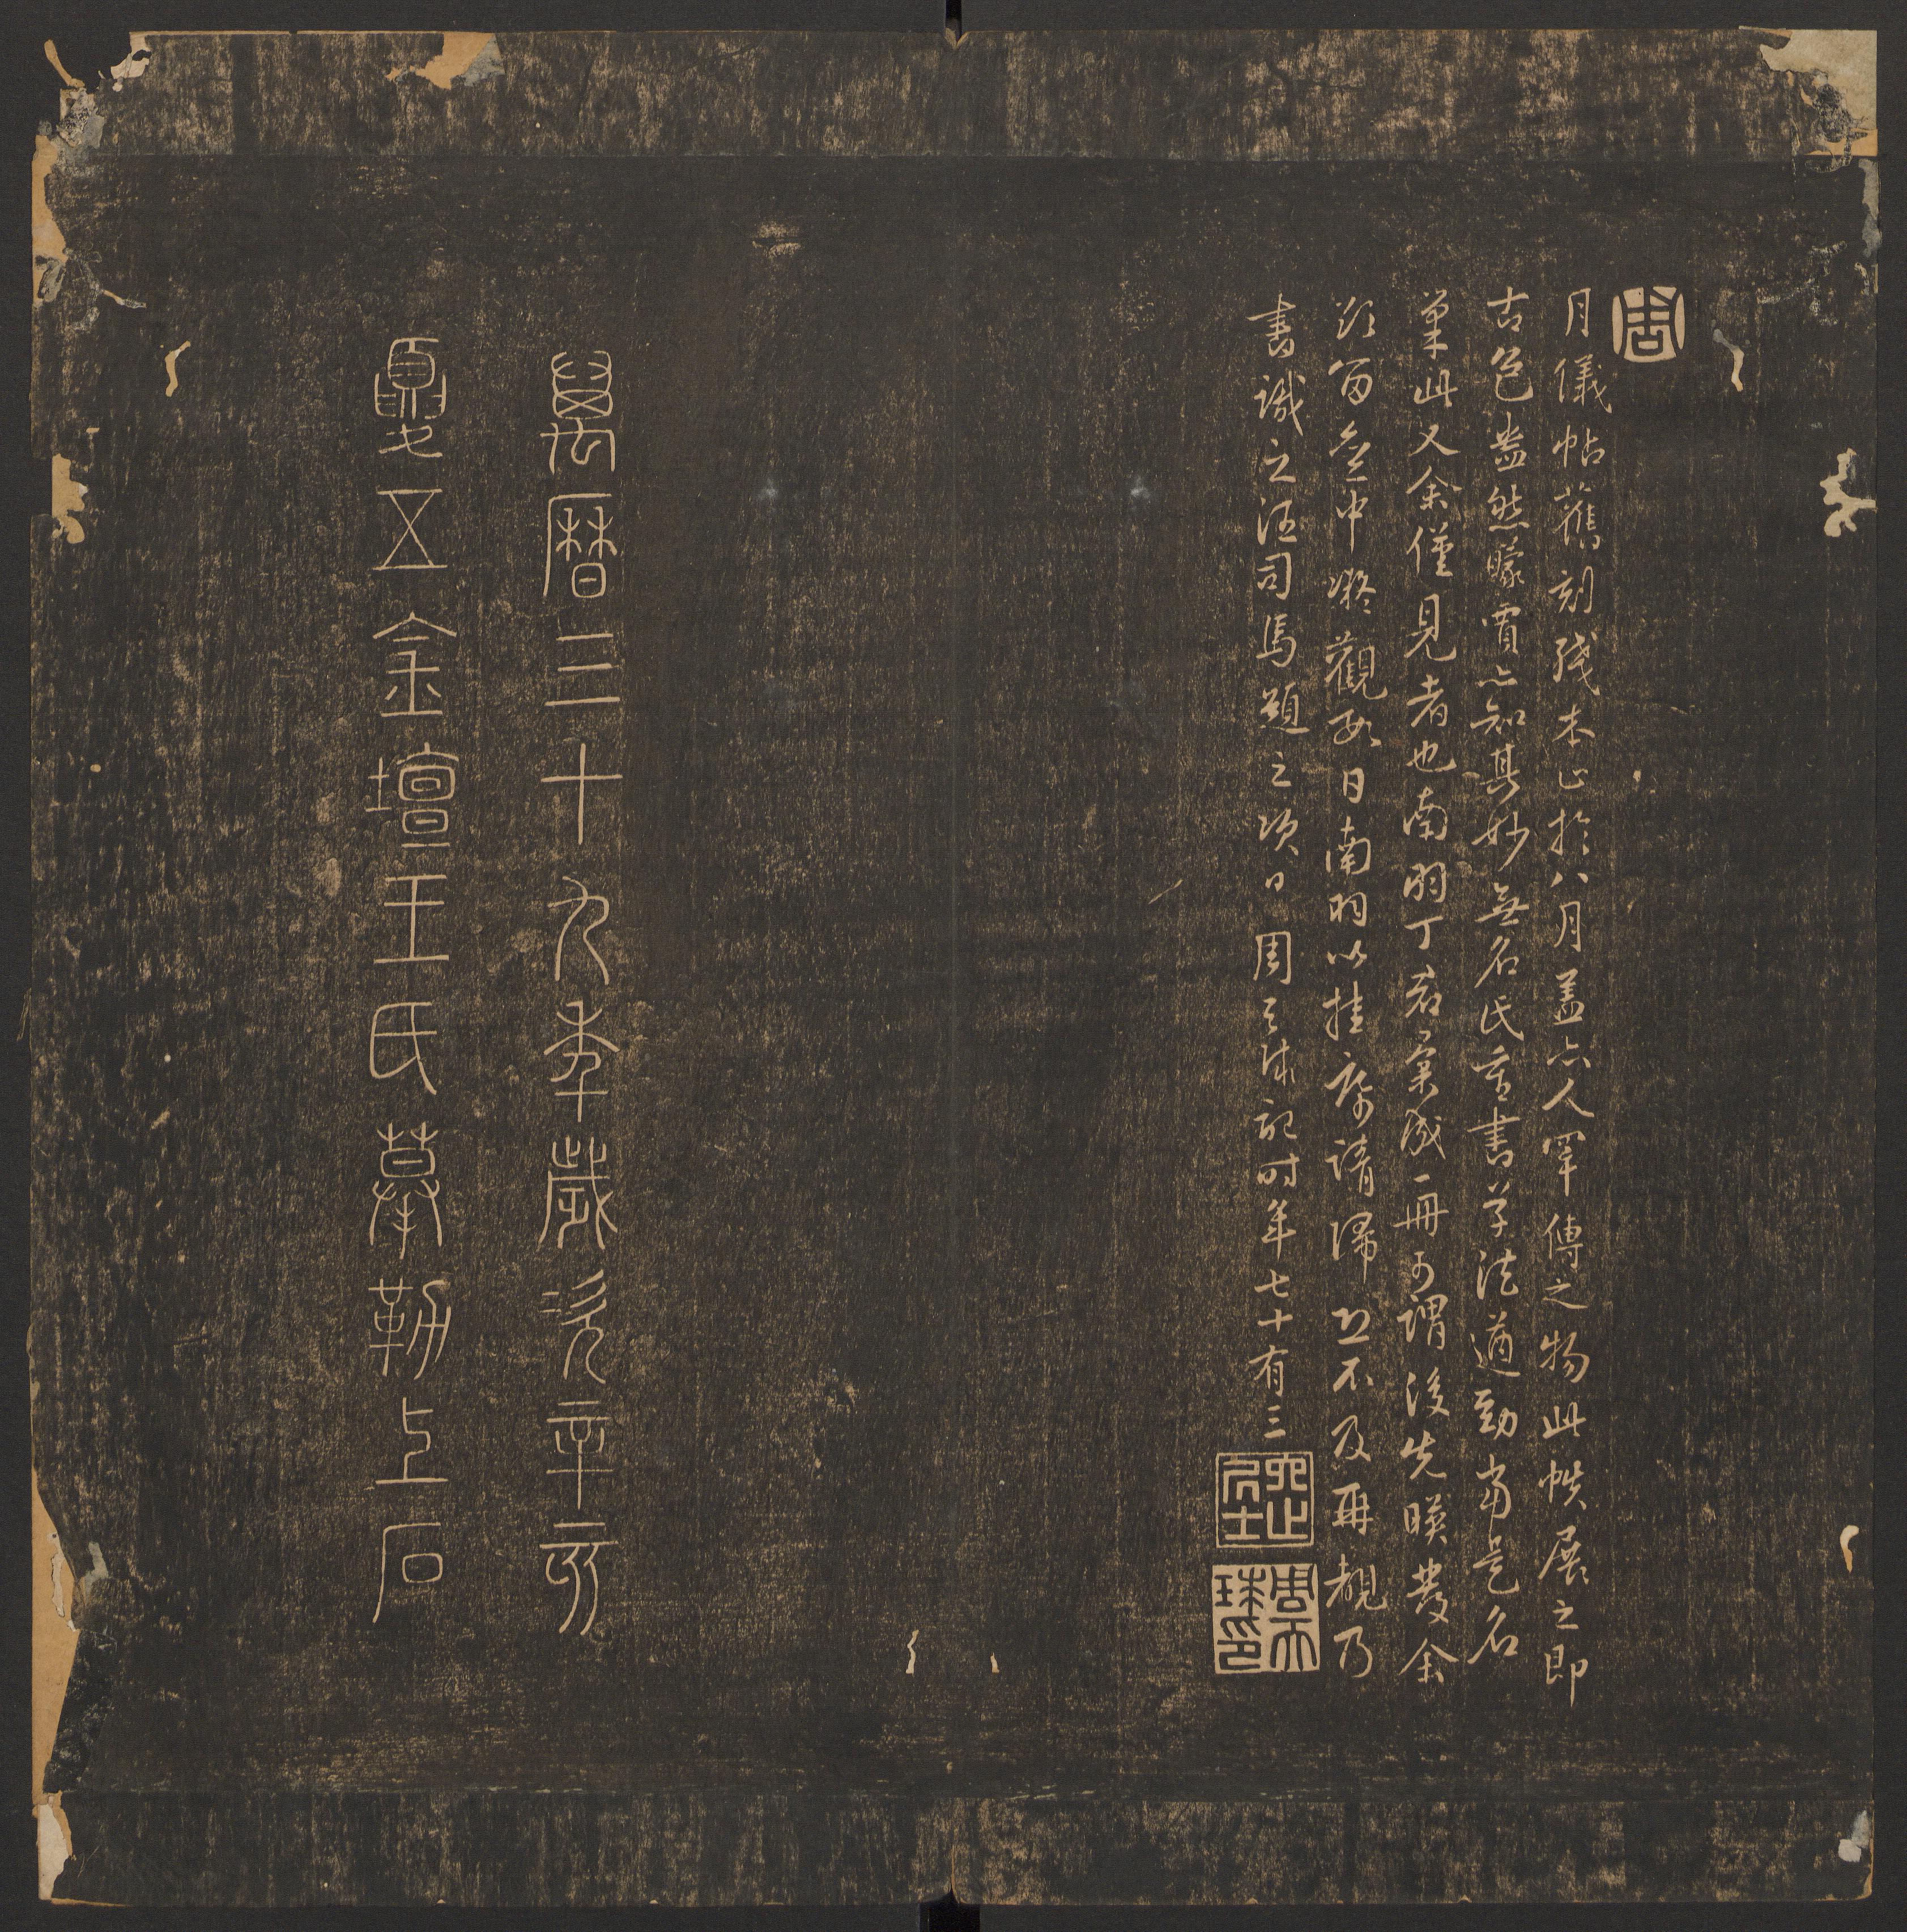 周
月儀帖舊刻殘本止於八月蓋亦人罕傳之物此帙展之即
古色盎然矇賈亦知其妙無名氏章書草法遒勁當是名
筆此又余僅見者也南羽丁君裒成一冊可謂後先暎發余
留齋中凝觀數日南羽以挂席請歸恐不及再觀乃
書識之汪司馬題之次日周天球記時年七十有三
六止居士
周天球印
萬曆三十九年歲次辛亥
夏五金壇王氏摹勒上石